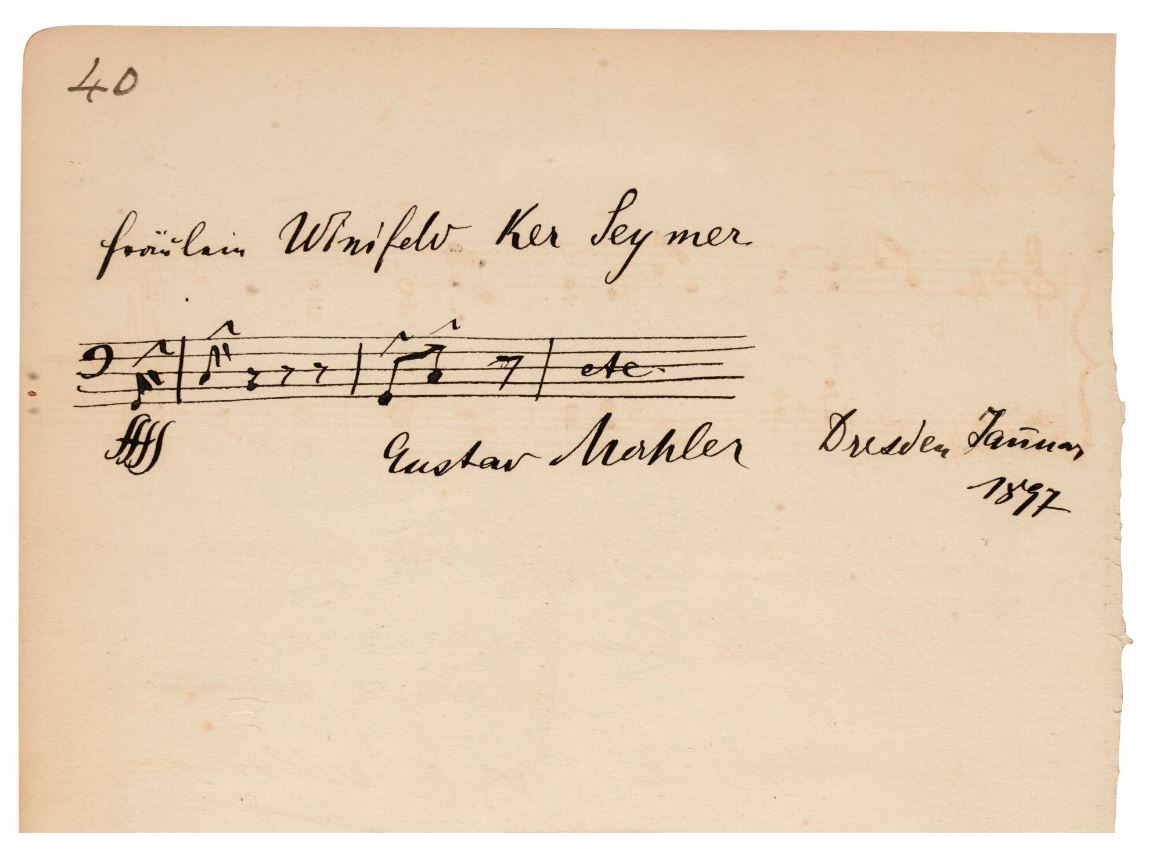 40
Fräulein Winifeld Ker Seymer
etc.
ffff
Gustav Mahler Dresden Januar
1897